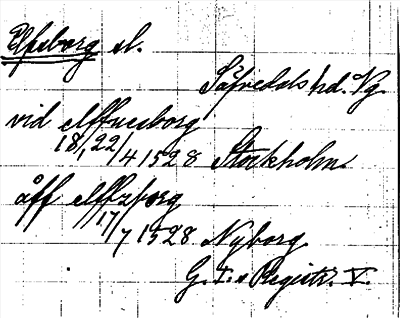 Elfsborg sl.
Sävedals hd. Vg.
vid elffuesborg
18, 22/4 1528 Stockholm
åff elffzborg
17/7 1528 Nyborg
G. I:s Registr. V.